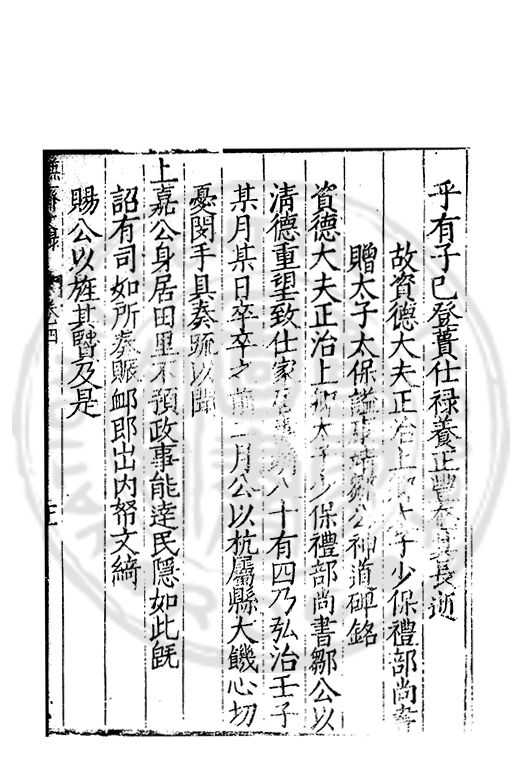 乎有子已登蕢仕禄養正豐奄其長逝
故資德大夫正治上卿太子少保禮部尚書
贈太子太保謚康靖鄒公神道碑銘
資德大夫正治上卿太子少保禮部尚書鄒公以
清德重望致仕家居八十有四乃弘治壬子
某月某日卒卒之前二月公以杭屬縣大饑心切
憂閔手具奏疏以聞
上嘉公身居田里不預政事能達民隱如此既
詔有司如所奏賑卹即出内帑文綺
賜公以旌其賢及是